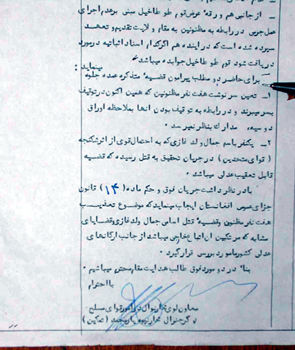 از جانبی هم ورقه عرض توم طوطا خیل سبنی برعدم اجرای
عمل جرمی در رابطه به مظنونین به مقام ولایت تقدیم و تعهد
سپرده شده است که در آینده هم اگر کدام اسناد اثباتیه درمورد
دریافت شود توم طوطا خیل جوابده میباشد
برای حاضر نمودن مطلب پیرامون قضیه متذکره عده جلوه مینماید:
۱- تعین سرنوشت هفت نفر مظنونین که همین اکنون درتوقیف
بسر میبرند و در رابطه به توقیف بودن آنها بملاحظه اوراق
دوسیه، مدارک بنظر نمیرسد.
۲- یکنفر باسم جمال ولد غازی که به احتمال قوی از اثر شکنجه
(قوای متحدین) درجریان تحقیق به قتل رسیده که قضیه
قابل تعقیب عدلی میباشد.
با در نظر داشت جریان فوق و حکم ماده (۱۴) قانون
جزای عصر افغانستان ایجاب مینماید که موضوع تعقیب
هفت نفر مظنونین وقضیه قتل اسمی جمال ولد غازی وقضایای
مشابه که مرتکبین آن اتباع خارجی میباشد از جانب ارگانهای
عدلی کشور مورد بررسی قرار گیرد.
بناً در دو مورد فوق طالب هدایت مقام محترم میباشیم.
با احترام
معاون لوی څارنوال در امور قوای مسلح